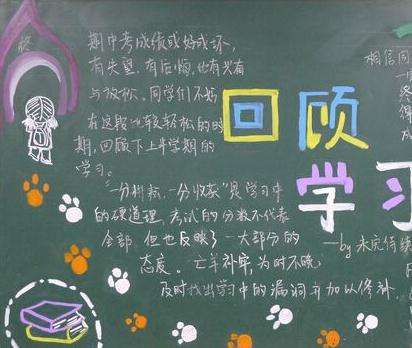 期中考成绩或好或坏，
有失望，有后悔，也有兴奋
与放松。同学们不妨
在这段比较轻松的时
期，回顾下上半学期的
学习。
“一分耕耘，一分收获”是学习中
的硬道理，考试的分数不代表
全部，但也反映了一大部分的
态度。亡羊补牢，为时不晚，
及时找出学习中的漏洞并加以修补
回顾
学习
相信同
一
终
得
——by